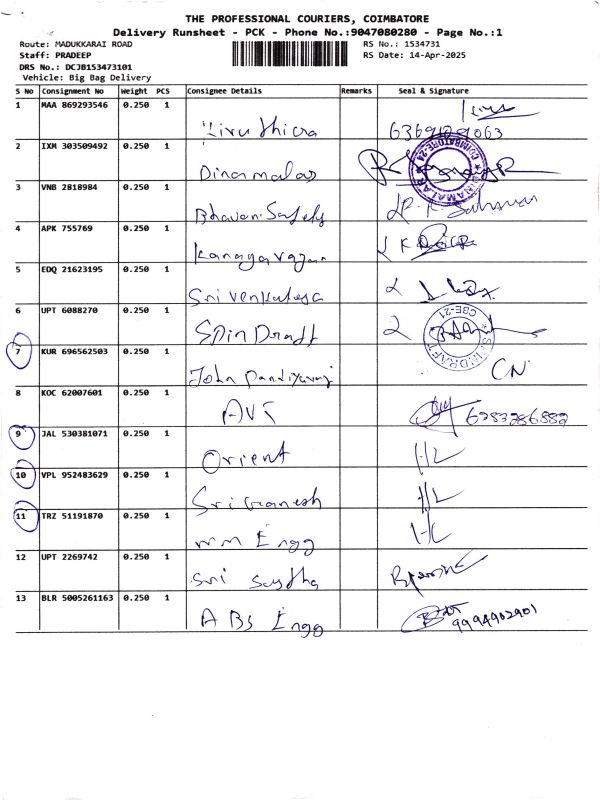 THE PROFESSIONAL COURIERS, COIMBATORE
Delivery Runsheet - PCK - Phone No.:9047080280 - Page No.:1
Route: MADUKKARAI ROAD
Staff: PRADEEP
DRS No.: DCJB153473101
Vehicle: Big Bag Delivery
RS No.: 1534731
RS Date: 14-Apr-2025
S No Consignment No Weight PCS Consignee Details Remarks Seal & Signature
1 MAA 869293546 0.250 1
2 IXM 303509492 0.250 1 Dinamalar COIMBATORE-24
3 VNB 2818984 0.250 1 Bhavani Safety
4 APK 755769 0.250 1
5 EDQ 21623195 0.250 1 Sri Venkatesa
6 UPT 6088270 0.250 1 Spin Draft CBE-21
7 KUR 696562503 0.250 1 John Pandiyaraj CN
8 KOC 62007601 0.250 1 AVT
9 JAL 530381071 0.250 1 Orient HL
10 VPL 952483629 0.250 1 Sri Ganesh HL
11 TRZ 51191870 0.250 1 mm Engg
12 UPT 2269742 0.250 1 Sri Sastha
13 BLR 5005261163 0.250 1 ABS Engg 9994902901